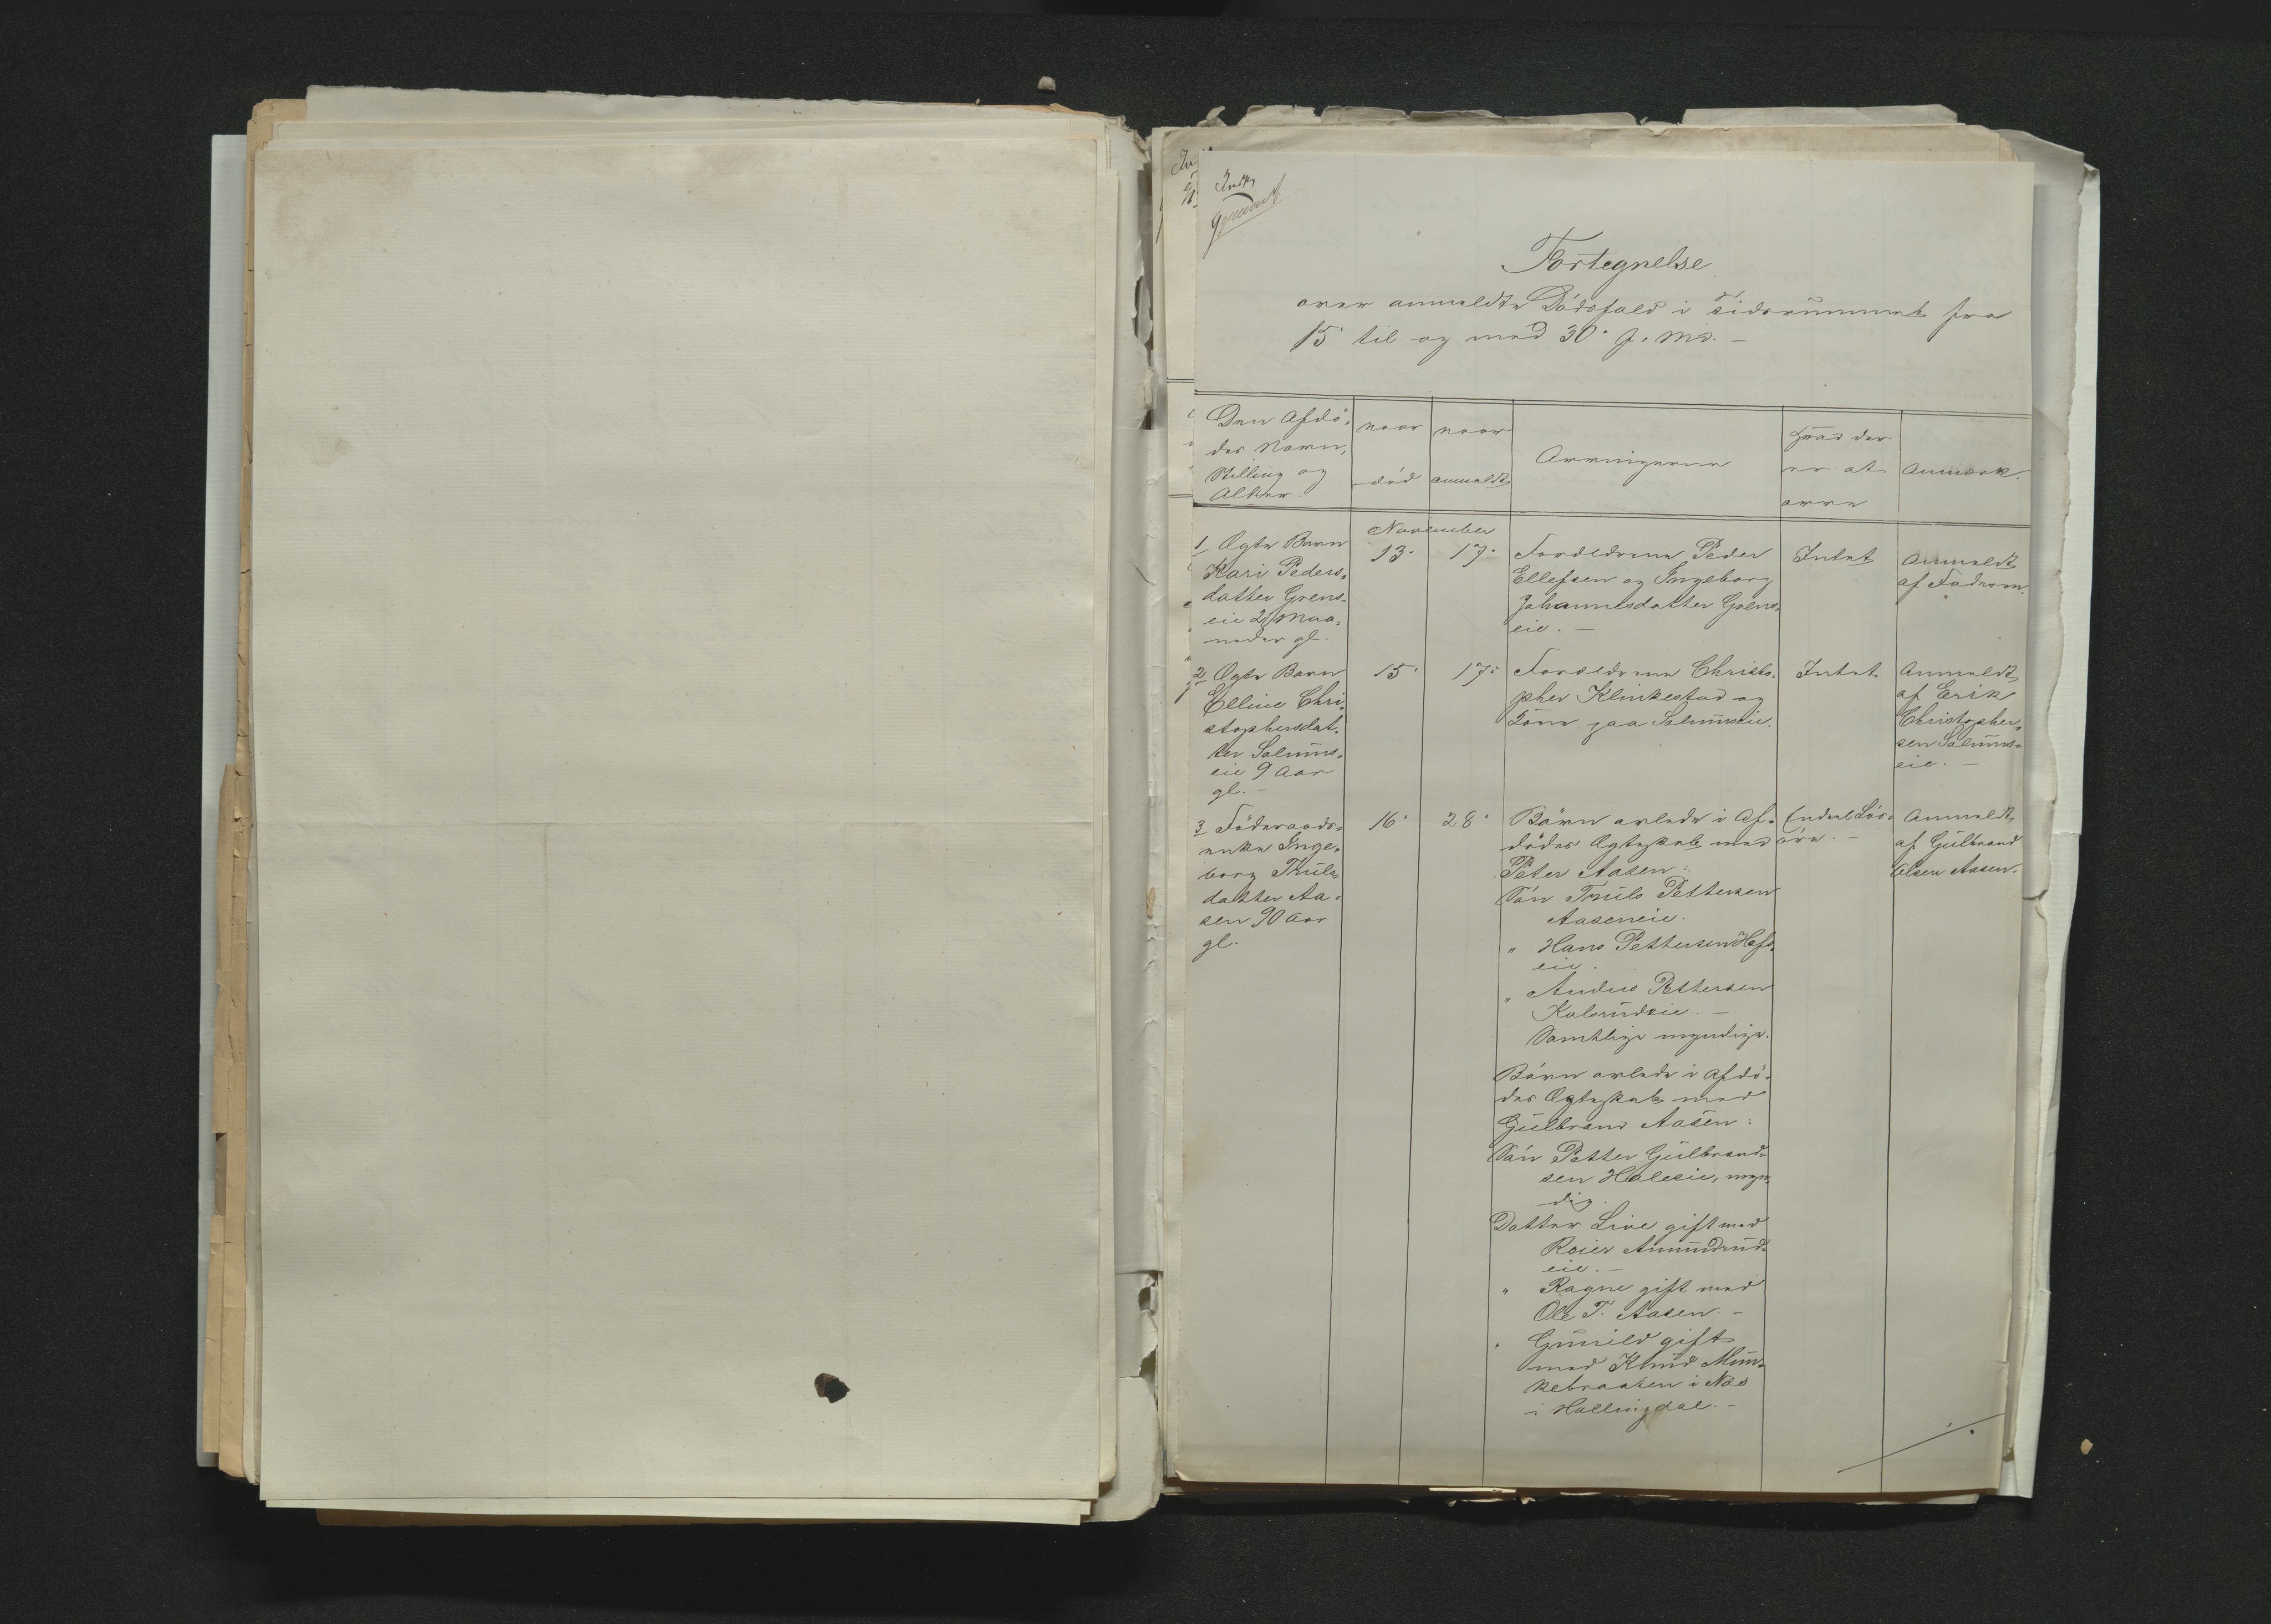 Fortegnelse
over anmeldte Dödsfald i Tidsrummet fra
15 til og med 30. ds. Md. –
Den Afdö-
des Navn,
Stilling og
Alder.
naar
död
naar
anmeldt
Arvingerne
Hvad der
er at
arve
Anmærk.
November
1 Ægte Barn
Kari Peders-
datter Grens-
eie 2½ Maa-
neder gl.
13.
17.
Forældrene Peder
Ellefsen og Ingeborg
Johannesdatter Grens-
eie. –
Intet
Anmeldt
af Faderen.
2 Ægte Barn
Elline Chri-
stophersdat-
ter Solums-
eie 9 Aar
gl. –
15.
17.
Forældrene Christo-
pher Klinkestad og
Kone paa Solumseie.
Intet
Anmeldt
af Erik
Christopher-
sen Solums-
eie. –
3 Föderaads-
enke Inge-
borg Truls-
datter Aa-
sen 90 Aar
gl.
16.
28.
Börn avlede i Af-
dödes Ægteskab med
Peter Aasen:
Sön Truls Pettersen
Aaseneie.
" Hans Pettersen Hafs-
eie.
" Anders Pettersen
Kolsrudeie. –
Samtlige myndige.
Börn avlede i Afdö-
des Ægteskab med
Gulbrand Aasen:
Sön Petter Gulbrand-
sen Haleseie, myn-
dig.
Datter Live gift med
Reier Amundrud-
eie. –
" Ragne gift med
Ole T. Aasen. –
" Gunild gift
med Knud Mun-
kebraaten i Næs
i Hallingdal. –
Endel Lös-
öre. –
Anmeldt
af Gulbrand
Olsen Aasen.